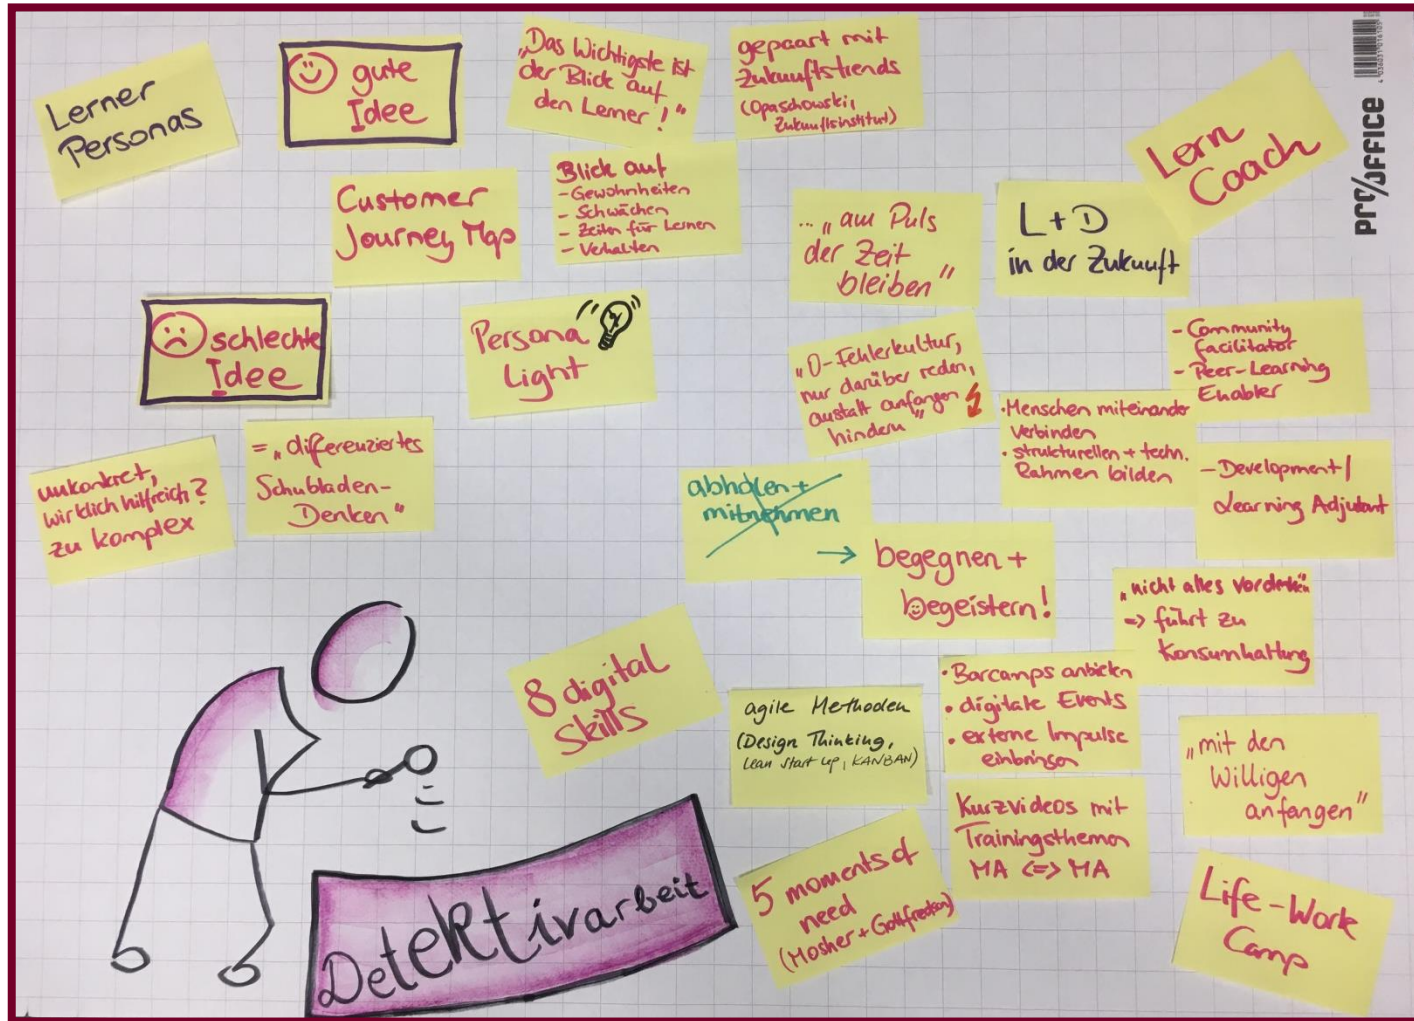 Lerner
Personas
gute
Idee
„Das Wichtigste ist
der Blick auf
den Lerner!"
gepaart mit
Zukunftstrends
(Opaschowski,
Zukunftsinstitut)
Lern
Coach
PRO/OFFICE
Customer
Journey Map
Blick auf
- Gewohnheiten
- Schwächen
- Zeiten für Lernen
- Verhalten
... „am Puls
der Zeit
bleiben"
L + D
in der Zukunft
schlechte
Idee
Persona
Light
„0-Fehlerkultur,
nur darüber reden,
anstatt anfangen
hindern"
- Community
facilitator
- Peer-Learning
Enabler
· Menschen miteinander
verbinden
· strukturellen + techn.
Rahmen bilden
- Development/
Learning Adjutant
unkonkret,
wirklich hilfreich?
zu komplex
= „differenziertes
Schubladen-
Denken"
abholen +
mitnehmen
→
begegnen +
begeistern!
„nicht alles
=> führt zu
Konsumhaltung
8 digital
Skills
agile Methoden
(Design Thinking,
Lean Start up, KANBAN)
· Barcamps anbieten
· digitale Events
· externe Impulse
einbringen
„mit den
Willigen
anfangen"
Kurzvideos mit
Trainingsthemen
MA <=> MA
5 moments of
need
(Mosher + Gottfredson)
Life-Work
Camp
Detektivarbeit